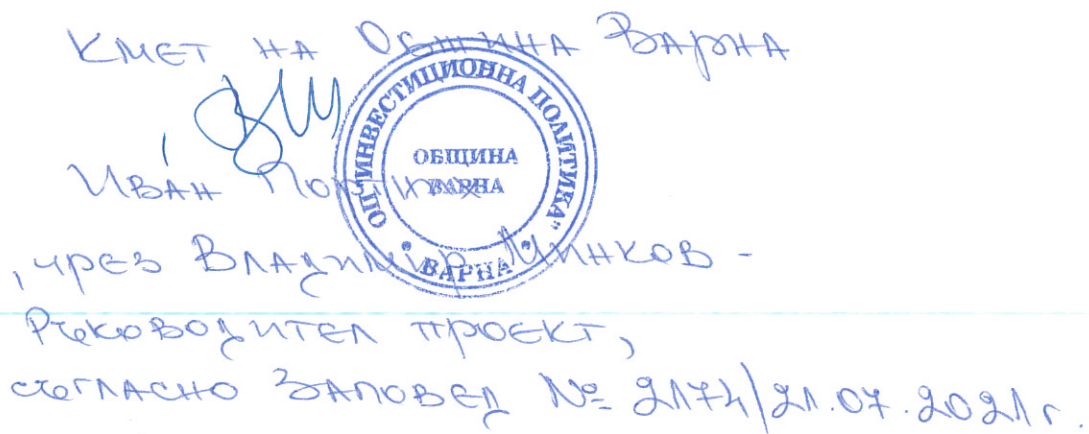 Кмет на Община Варна
ОП "ИНВЕСТИЦИОННА ПОЛИТИКА"
ОБЩИНА
ВАРНА
ВАРНА
Иван Портних
, чрез Владимир Минков -
Ръководител проект,
съгласно Заповед № 2174/21.07.2021г.